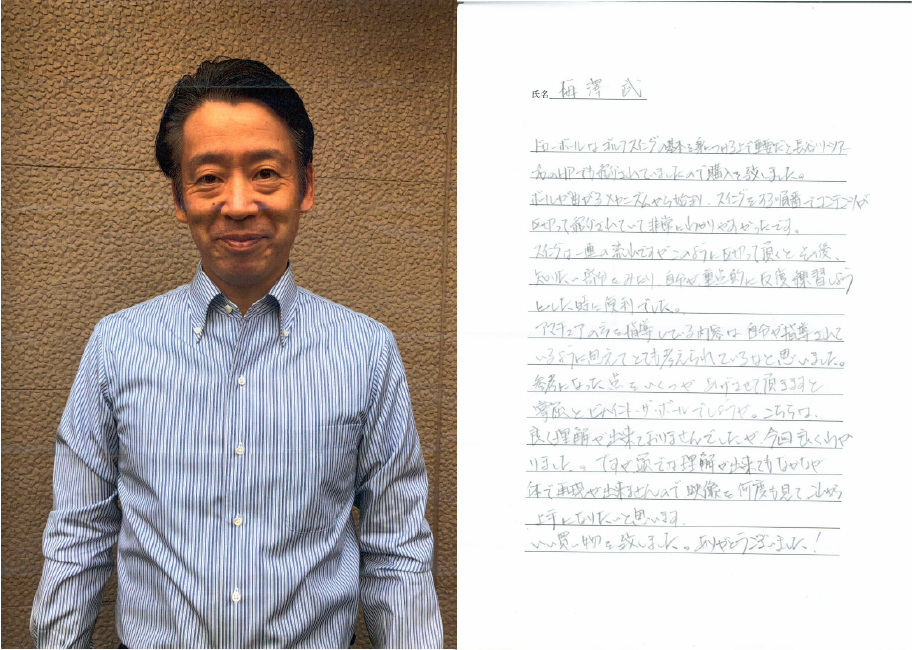 氏名 梅澤 武
ドローボールはゴルフスイングの基本を身につける上で重要だと長谷川
のHPでも紹介されていましたので購入を致しました。
ボールが曲がるメカニズムから始まり、スイングをする順番でコンテンツが
区切って紹介されていて非常にわかりやすかったです。
スイングは一連の流れですがこのように区切って頂くと その後、
知りたい部分をみたり 自分が重点的に反復練習しよう
とした時に便利でした。
アマチュアの方を指導している内容は 自分が指導されて
いるように思えてとても考えられているなと思いました。
参考になった点をいくつか あげさせて頂きますと
掌屈と ビハインド・ザ・ボールでしょうか。こちらは、
良く理解が出来ておりませんでしたが 今回良くわか
りました。ですが頭で理解が出来てもなかなか
体で再現が出来ませんので 映像を何度も見て これから
上手になりたいと思います。
いい買い物を致しました。ありがとうございました!